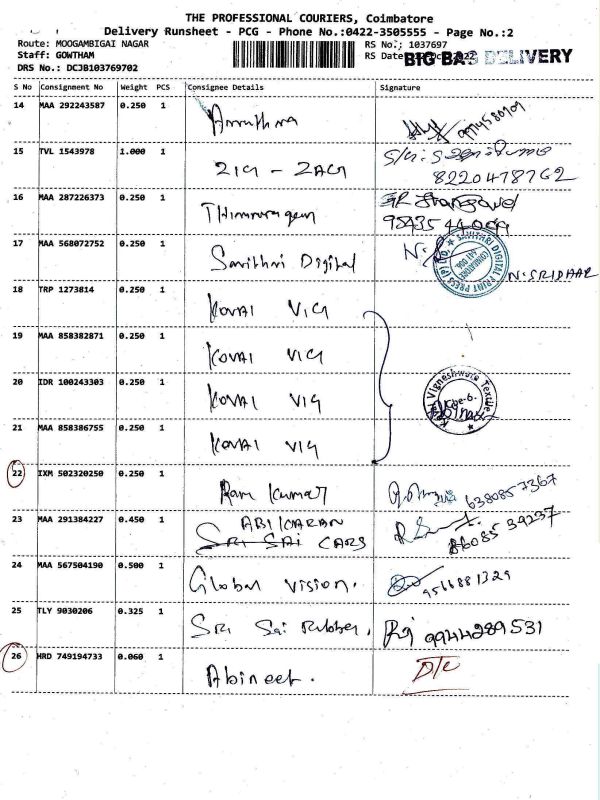 THE PROFESSIONAL COURIERS, Coimbatore
Delivery Runsheet - PCG - Phone No.:0422-3505555 - Page No.:2
Route: MOOGAMBIGAI NAGAR
Staff: GOWTHAM
DRS No.: DCJB103769702
RS No.: 1037697
RS Date
BIG BAG DELIVERY
S No Consignment No Weight PCS Consignee Details Signature
14 MAA 292243587 0.250 1
15 TVL 1543978 1.000 1 ZIG - ZAG
8220478762
16 MAA 287226373 0.250 1
17 MAA 568072752 0.250 1 Savithri Digital N.
SAVITHRI DIGITAL PRINT PRESS (P) LTD.
COIMBATORE
641 006.
N. SRIDHAR
18 TRP 1273814 0.250 1 KOVAI VIG
19 MAA 858382871 0.250 1 KOVAI VIG
20 IDR 100243303 0.250 1 KOVAI VIG
Vigneshwara Textile
Cbe-6.
21 MAA 858386755 0.250 1 KOVAI VIG
22 IXM 502320250 0.250 1 Ram Kumar 6380857367
23 MAA 291384227 0.450 1 ABIKARAN
SRI SAI CARS 8608539237
24 MAA 567504190 0.500 1 Global vision. 9566881329
25 TLY 9030206 0.325 1 Sri Sai Rubber, 9944289531
26 HRD 749194733 0.060 1 Abineet. D/C